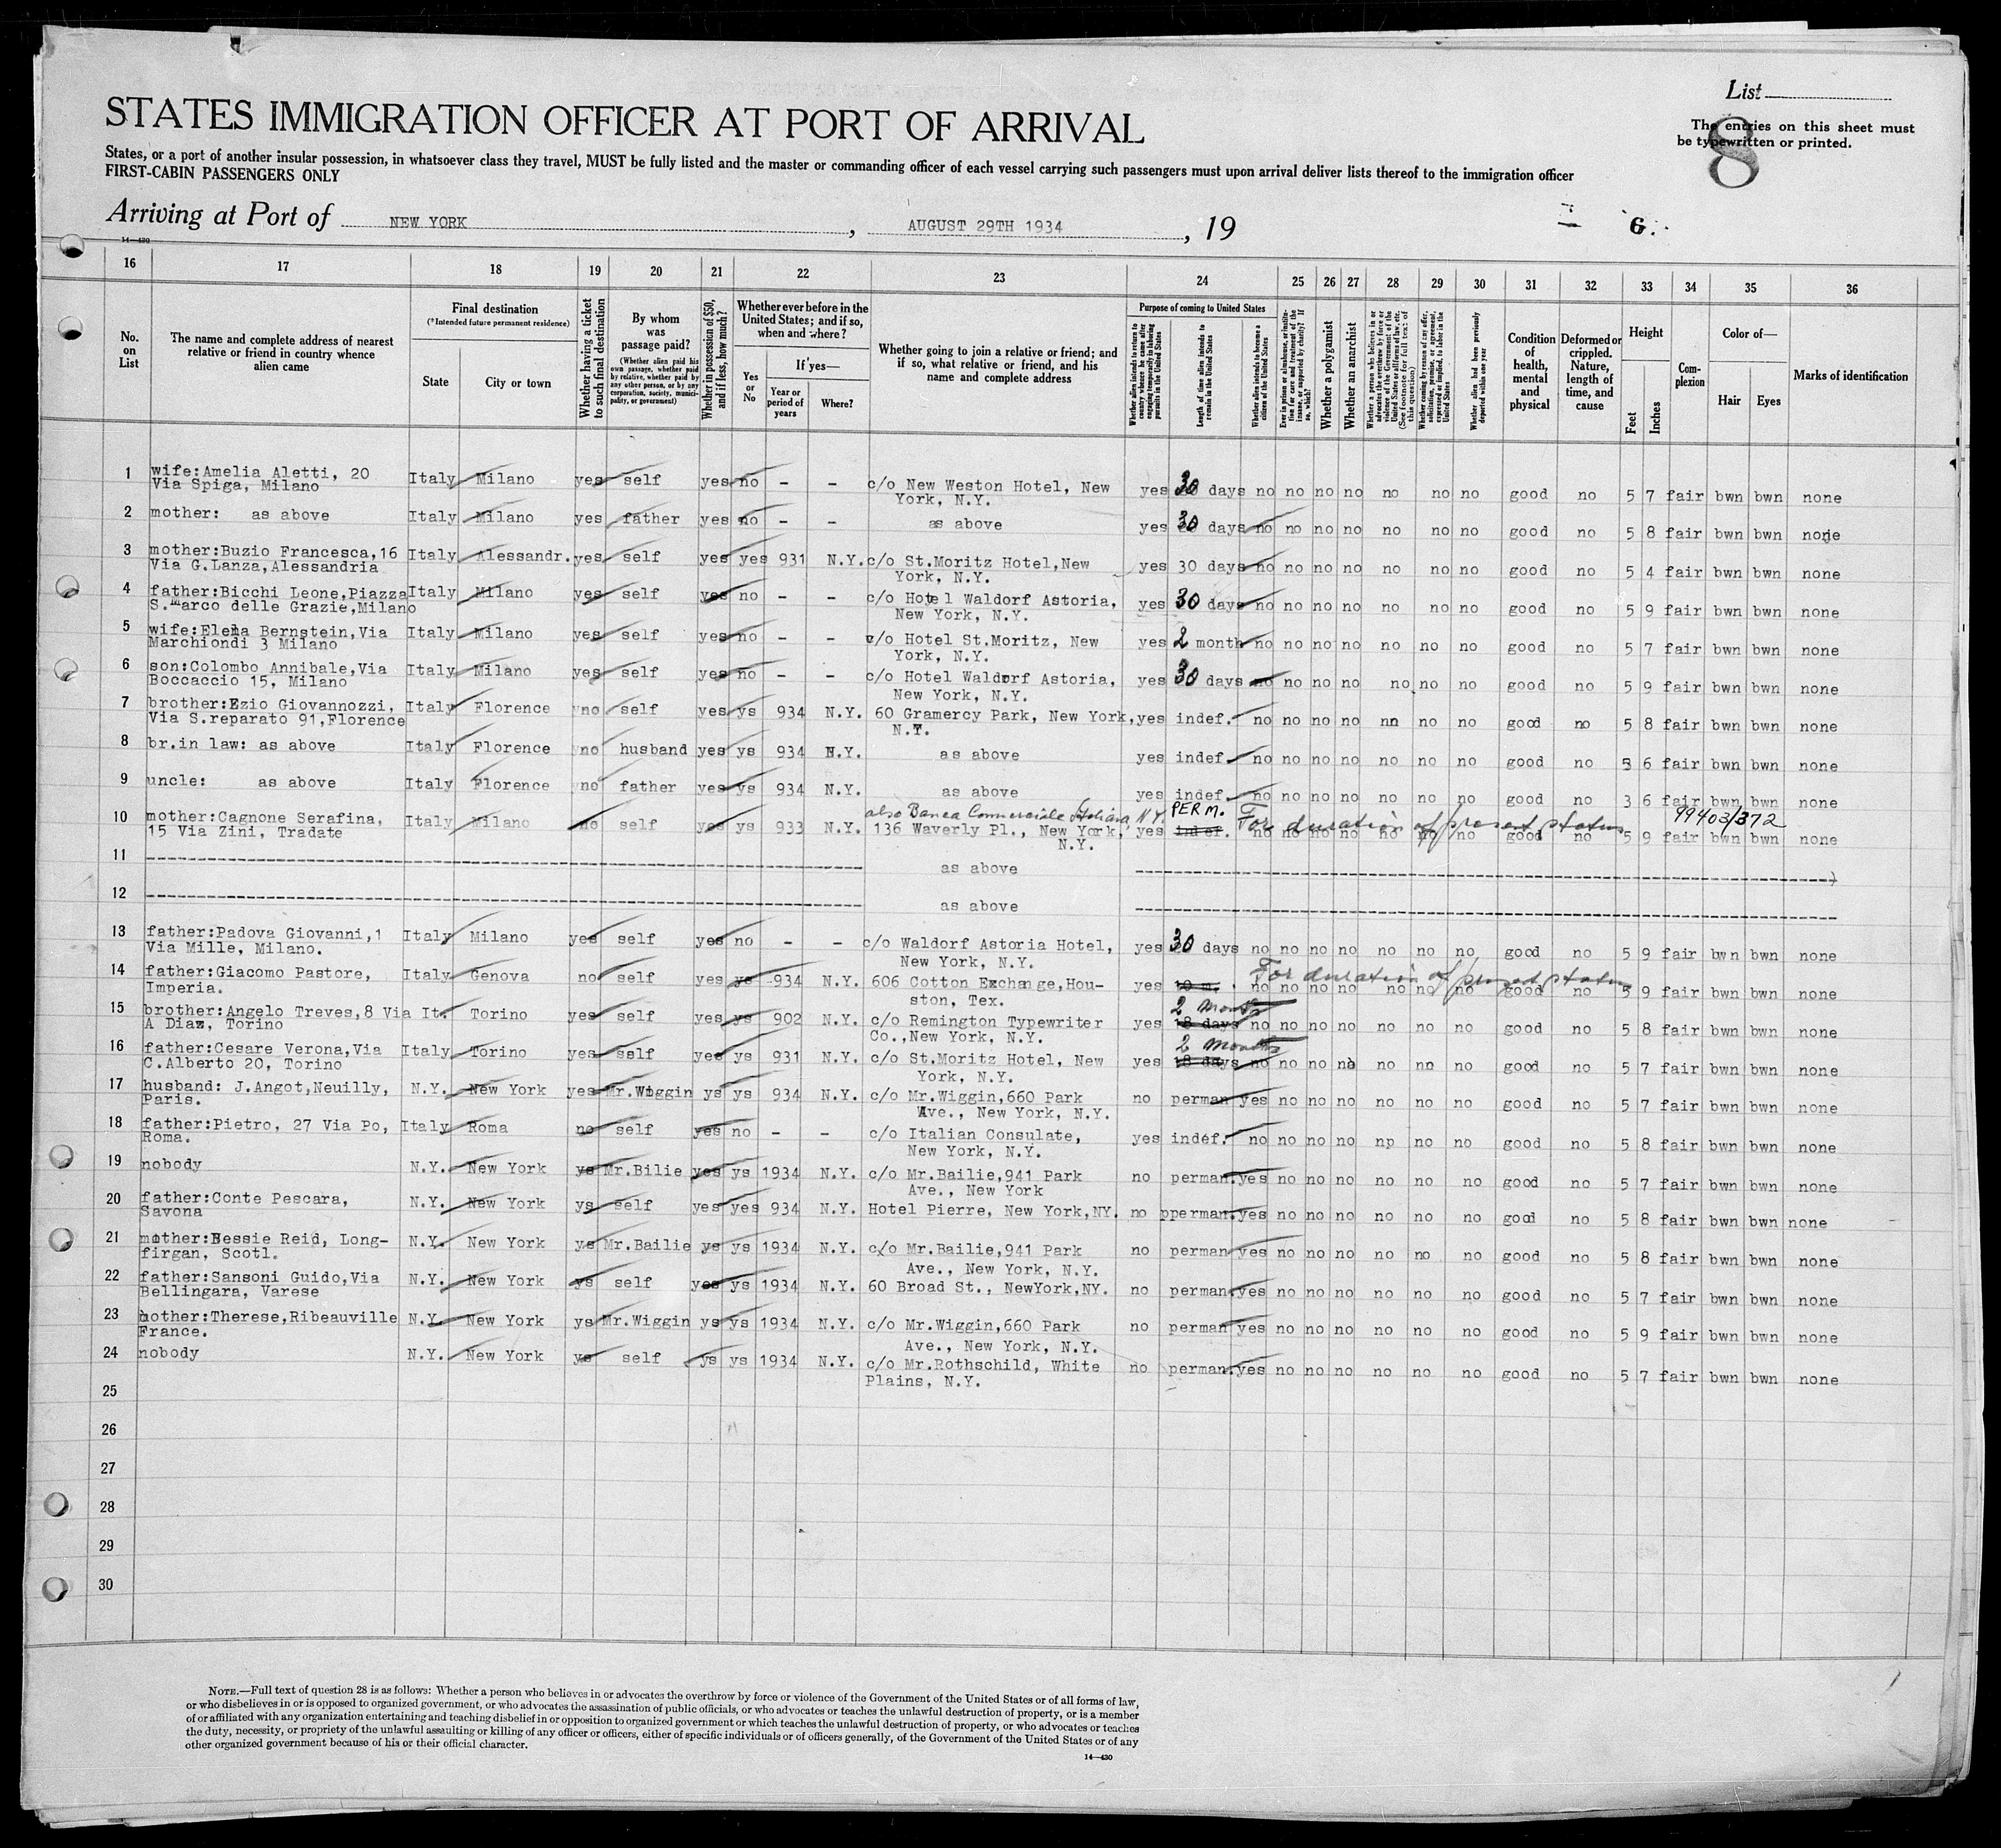 List
STATES IMMIGRATION OFFICER AT PORT OF ARRIVAL
8
The entries on this sheet must
be typewritten or printed.
States, or a port of another insular possession, in whatsoever class they travel, MUST be fully listed and the master or commanding officer of each vessel carrying such passengers must upon arrival deliver lists thereof to the immigration officer
FIRST-CABIN PASSENGERS ONLY
Arriving at Port of NEW YORK, AUGUST 29TH 1934, 19 6.
14—430
16 17 18 19 20 21 22 23 24 25 26 27 28 29 30 31 32 33 34 35 36
No. on List
The name and complete address of nearest relative or friend in country whence alien came
Final destination
(*Intended future permanent residence)
State
City or town
Whether having a ticket to such final destination
By whom was passage paid?
(Whether alien paid his own passage, whether paid by relative, whether paid by any other person, or by any corporation, society, municipality, or government)
Whether in possession of $50, and if less, how much?
Whether ever before in the United States; and if so, when and where?
Yes or No
If yes—
Year or period of years
Where?
Whether going to join a relative or friend; and if so, what relative or friend, and his name and complete address
Purpose of coming to United States
Whether alien intends to return to country whence he came after engaging temporarily in laboring pursuits in the United States
Length of time alien intends to remain in the United States
Whether alien intends to become a citizen of the United States
Ever in prison or almshouse, or institution for care and treatment of the insane, or supported by charity? If so, which?
Whether a polygamist
Whether an anarchist
Whether a person who believes in or advocates the overthrow by force or violence of the Government of the United States or all forms of law, etc. (See footnote for full text of this question)
Whether coming by reason of any offer, solicitation, promise, or agreement, expressed or implied, to labor in the United States
Whether alien had been previously deported within one year
Condition of health, mental and physical
Deformed or crippled. Nature, length of time, and cause
Height
Feet
Inches
Complexion
Color of—
Hair
Eyes
Marks of identification
1 wife:Amelia Aletti, 20 Italy Milano yes self yes no - - c/o New Weston Hotel, New yes 30 days no no no no no no no good no 5 7 fair bwn bwn none
Via Spiga, Milano York, N.Y.
2 mother: as above Italy Milano yes father yes no - - as above yes 30 days no no no no no no no good no 5 8 fair bwn bwn none
3 mother:Buzio Francesca,16 Italy Alessandr. yes self yes yes 931 N.Y. c/o St.Moritz Hotel,New yes 30 days no no no no no no no good no 5 4 fair bwn bwn none
Via G.Lanza,Alessandria York, N.Y.
4 father:Bicchi Leone,Piazza Italy Milano yes self yes no - - c/o Hotel Waldorf Astoria, yes 30 days no no no no no no no good no 5 9 fair bwn bwn none
S.Marco delle Grazie,Milano New York, N.Y.
5 wife:Elena Bernstein,Via Italy Milano yes self yes no - - c/o Hotel St.Moritz, New yes 2 month no no no no no no no good no 5 7 fair bwn bwn none
Marchiondi 3 Milano York, N.Y.
6 son:Colombo Annibale,Via Italy Milano yes self yes no - - c/o Hotel Waldorf Astoria, yes 30 days no no no no no no no good no 5 9 fair bwn bwn none
Boccaccio 15, Milano New York, N.Y.
7 brother:Ezio Giovannozzi, Italy Florence no self yes ys 934 N.Y. 60 Gramercy Park, New York, yes indef. no no no no nn no no good no 5 8 fair bwn bwn none
Via S.reparato 91,Florence N.Y.
8 br.in law: as above Italy Florence no husband yes ys 934 N.Y. as above yes indef. no no no no no no no good no 5 6 fair bwn bwn none
9 uncle: as above Italy Florence no father yes ys 934 N.Y. as above yes indef. no no no no no no no good no 3 6 fair bwn bwn none
also Banca Commerciale Italiana N.Y. PERM. For duration of present status 99403/372
10 mother:Cagnone Serafina, Italy Milano no self yes ys 933 N.Y. 136 Waverly Pl., New York, yes indef. no no no no no no no good no 5 9 fair bwn bwn none
15 Via Zini, Tradate N.Y.
11 as above
12 as above
13 father:Padova Giovanni,1 Italy Milano yes self yes no - - c/o Waldorf Astoria Hotel, yes 30 days no no no no no no no good no 5 9 fair bwn bwn none
Via Mille, Milano. New York, N.Y.
For duration of present status
14 father:Giacomo Pastore, Italy Genova no self yes ys 934 N.Y. 606 Cotton Exchange,Hou- yes 10 m. no no no no no no no good no 5 9 fair bwn bwn none
Imperia. ston, Tex.
2 months
15 brother:Angelo Treves,8 Via It. Torino yes self yes ys 902 N.Y. c/o Remington Typewriter yes 18 days no no no no no no no good no 5 8 fair bwn bwn none
A Diaz, Torino Co.,New York, N.Y.
2 months
16 father:Cesare Verona,Via Italy Torino yes self yes ys 931 N.Y. c/o St.Moritz Hotel, New yes 18 days no no no no no no no good no 5 7 fair bwn bwn none
C.Alberto 20, Torino York, N.Y.
17 husband: J.Angot,Neuilly, N.Y. New York yes Mr.Wiggin ys ys 934 N.Y. c/o Mr.Wiggin,660 Park no perman yes no no no no no no good no 5 7 fair bwn bwn none
Paris. Ave., New York, N.Y.
18 father:Pietro, 27 Via Po, Italy Roma no self yes no - - c/o Italian Consulate, yes indef. no no no no np no no good no 5 8 fair bwn bwn none
Roma. New York, N.Y.
19 nobody N.Y. New York ys Mr.Bilie yes ys 1934 N.Y. c/o Mr.Bailie,941 Park no perman. yes no no no no no no good no 5 7 fair bwn bwn none
Ave., New York
20 father:Conte Pescara, N.Y. New York ys self yes yes 934 N.Y. Hotel Pierre, New York,NY. no pperman. yes no no no no no no good no 5 8 fair bwn bwn none
Savona
21 mother:Bessie Reid, Long- N.Y. New York ys Mr.Bailie ys ys 1934 N.Y. c/o Mr.Bailie,941 Park no perman yes no no no no no no good no 5 8 fair bwn bwn none
firgan, Scotl. Ave., New York, N.Y.
22 father:Sansoni Guido,Via N.Y. New York ys self yes ys 1934 N.Y. 60 Broad St., NewYork,NY. no perman. yes no no no no no no good no 5 7 fair bwn bwn none
Bellingara, Varese
23 mother:Therese,Ribeauville N.Y. New York ys Mr.Wiggin ys ys 1934 N.Y. c/o Mr.Wiggin,660 Park no perman yes no no no no no no good no 5 9 fair bwn bwn none
France. Ave., New York, N.Y.
24 nobody N.Y. New York ys self ys ys 1934 N.Y. c/o Mr.Rothschild, White no perman. yes no no no no no no good no 5 7 fair bwn bwn none
Plains, N.Y.
25
26
27
28
29
30
NOTE.—Full text of question 28 is as follows: Whether a person who believes in or advocates the overthrow by force or violence of the Government of the United States or of all forms of law,
or who disbelieves in or is opposed to organized government, or who advocates the assassination of public officials, or who advocates or teaches the unlawful destruction of property, or is a member
of or affiliated with any organization entertaining and teaching disbelief in or opposition to organized government or which teaches the unlawful destruction of property, or who advocates or teaches
the duty, necessity, or propriety of the unlawful assaulting or killing of any officer or officers, either of specific individuals or of officers generally, of the Government of the United States or of any
other organized government because of his or their official character.
14—430